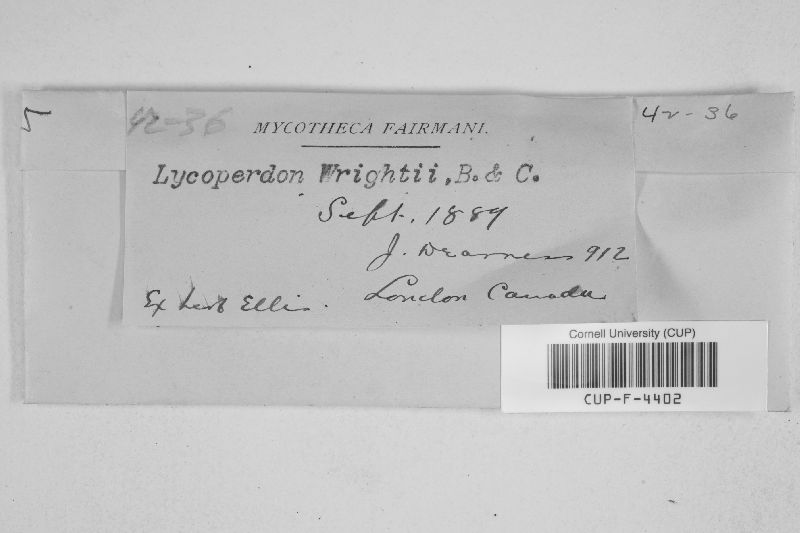 5
42-36
42-36
MYCOTHECA FAIRMANI.
Lycoperdon Wrightii, B. & C.
Sept. 1889
J. Dearness 912
Ex herb Ellis. London Canada
Cornell University (CUP)
CUP-F-4402